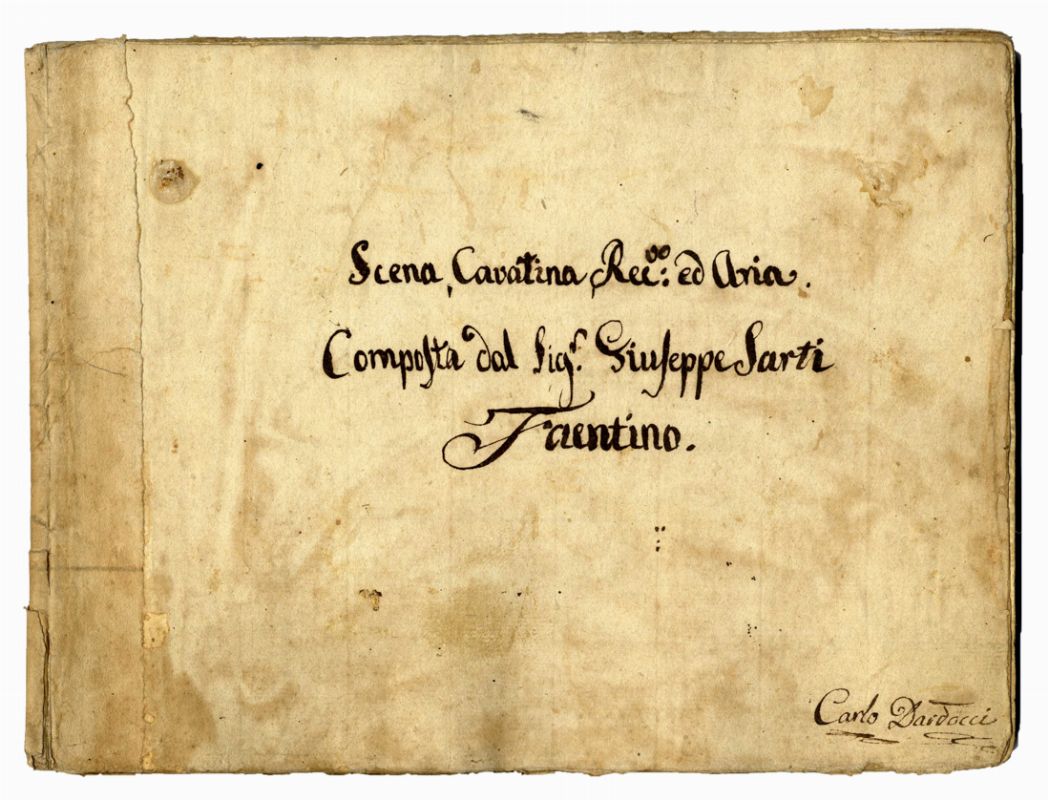 Scena, Cavatina, Rec.vo ed Aria.
Composta dal Sig.r Giuseppe Sarti
Faentino.
Carlo Dardocci